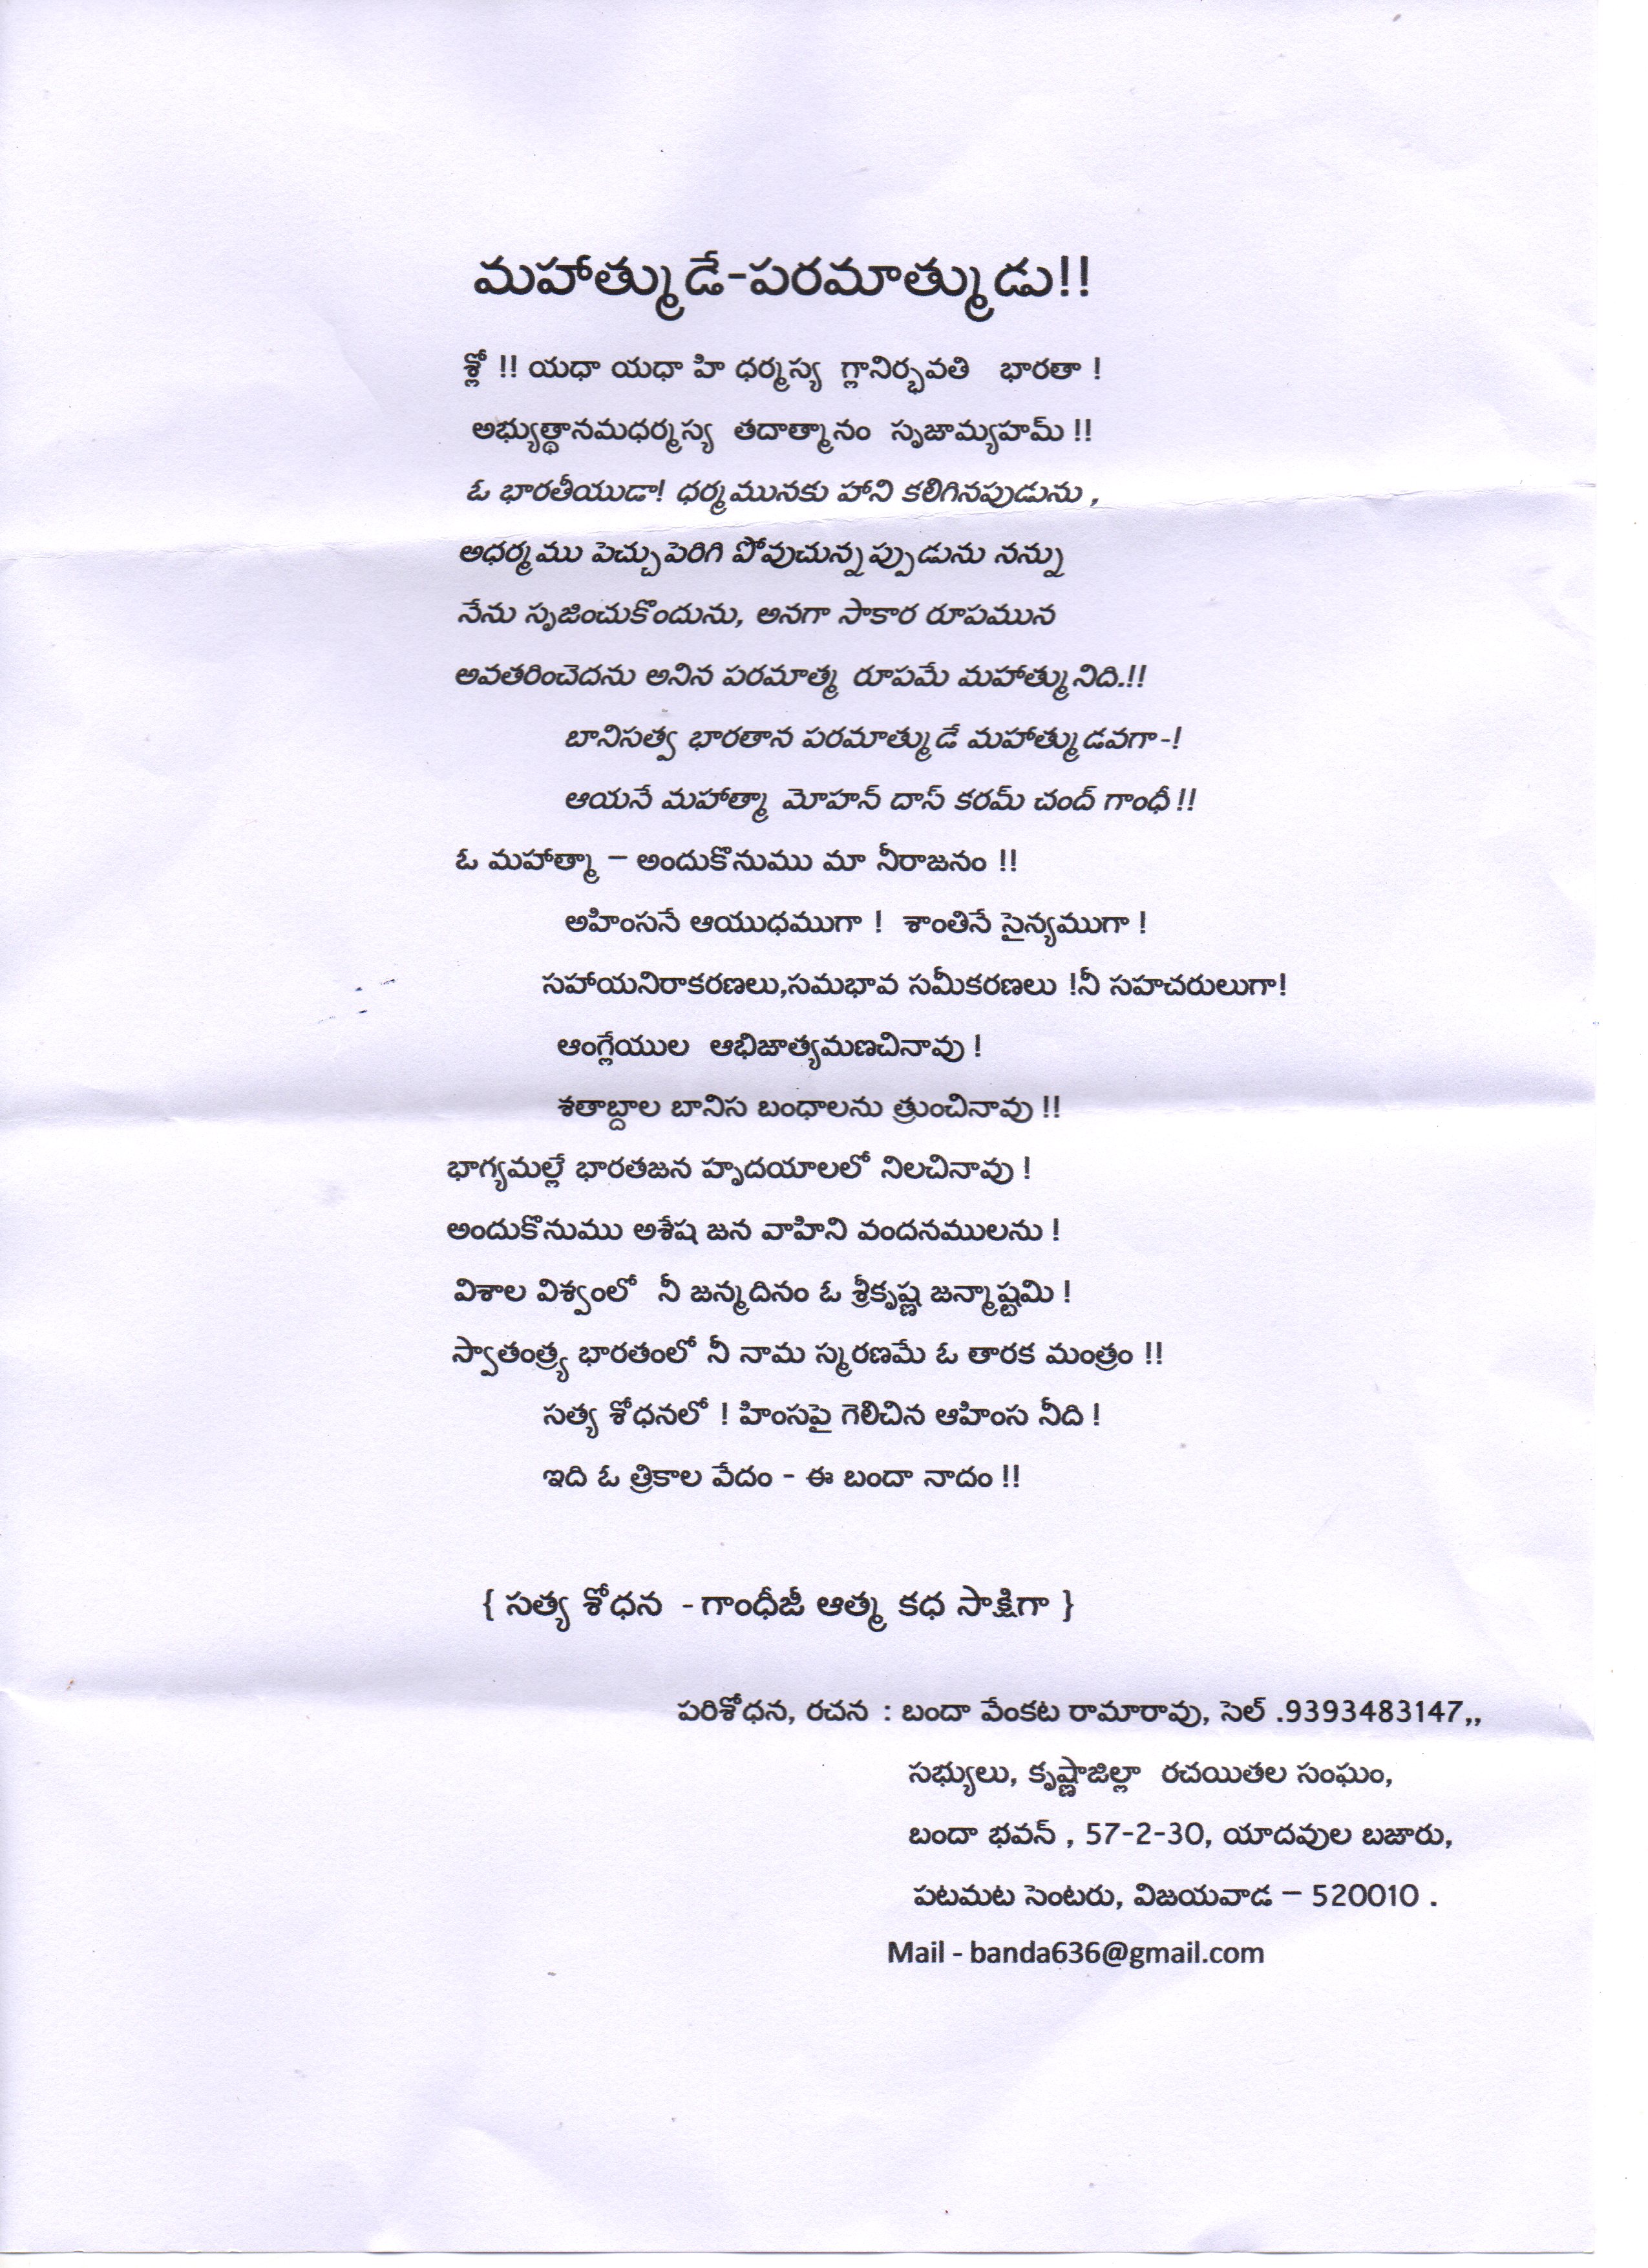 మహాత్ముడే-పరమాత్ముడు!!
శ్లో !! యధా యధా హి ధర్మస్య గ్లానిర్భవతి భారతా !
అభ్యుత్థానమధర్మస్య తదాత్మానం సృజామ్యహమ్ !!
ఓ భారతీయుడా! ధర్మమునకు హాని కలిగినపుడును ,
అధర్మము పెచ్చుపెరిగి పోవుచున్నప్పుడును నన్ను
నేను సృజించుకొందును, అనగా సాకార రూపమున
అవతరించెదను అనిన పరమాత్మ రూపమే మహాత్మునిది.!!
బానిసత్వ భారతాన పరమాత్ముడే మహాత్ముడవగా-!
ఆయనే మహాత్మా మోహన్ దాస్ కరమ్ చంద్ గాంధీ !!
ఓ మహాత్మా – అందుకొనుము మా నీరాజనం !!
అహింసనే ఆయుధముగా ! శాంతినే సైన్యముగా !
సహాయనిరాకరణలు,సమభావ సమీకరణలు !నీ సహచరులుగా!
ఆంగ్లేయుల ఆభిజాత్యమణచినావు !
శతాబ్దాల బానిస బంధాలను త్రుంచినావు !!
భాగ్యమల్లే భారతజన హృదయాలలో నిలచినావు !
అందుకొనుము అశేష జన వాహిని వందనములను !
విశాల విశ్వంలో నీ జన్మదినం ఓ శ్రీకృష్ణ జన్మాష్టమి !
స్వాతంత్ర్య భారతంలో నీ నామ స్మరణమే ఓ తారక మంత్రం !!
సత్య శోధనలో ! హింసపై గెలిచిన ఆహింస నీది !
ఇది ఓ త్రికాల వేదం - ఈ బందా నాదం !!
{ సత్య శోధన - గాంధీజీ ఆత్మ కధ సాక్షిగా }
పరిశోధన, రచన : బందా వేంకట రామారావు, సెల్ .9393483147,,
సభ్యులు, కృష్ణాజిల్లా రచయితల సంఘం,
బందా భవన్ , 57-2-30, యాదవుల బజారు,
పటమట సెంటరు, విజయవాడ – 520010 .
Mail - banda636@gmail.com